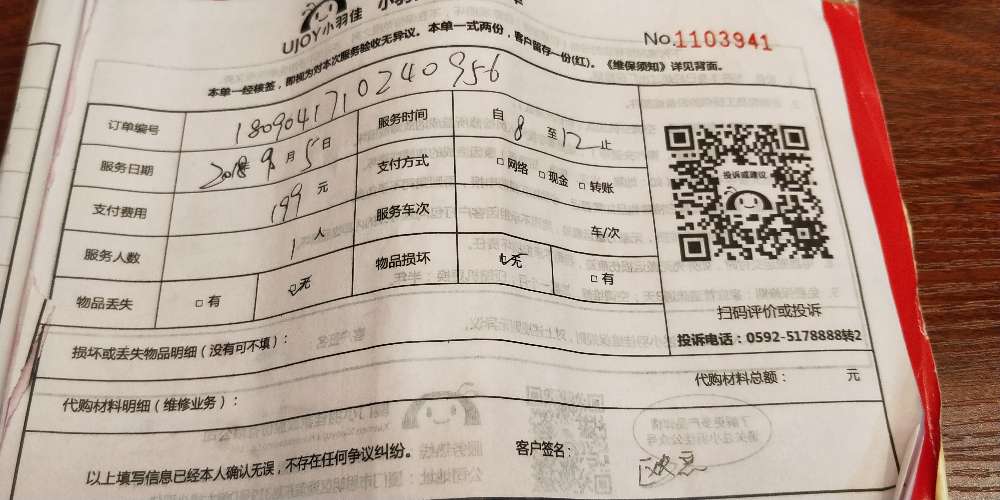 UJOY小羽佳
No.1103941
本单一经核签，即视为对本次服务验收无异议。本单一式两份，客户留存一份(红)。《维保须知》详见背面。
订单编号 180904171024 0956
服务时间 自 8 至 12 止
服务日期 2018年9月5日
支付方式 □网络 □现金 □转账
支付费用 199 元
服务车次 车/次
服务人数 1 人
物品丢失 □有 □无
物品损坏 □无 □有
投诉或建议
扫码评价或投诉
投诉电话：0592-5178888转2
损坏或丢失物品明细（没有可不填）：
代购材料总额： 元
代购材料明细（维修业务）：
以上填写信息已经本人确认无误，不存在任何争议纠纷。
客户签名：